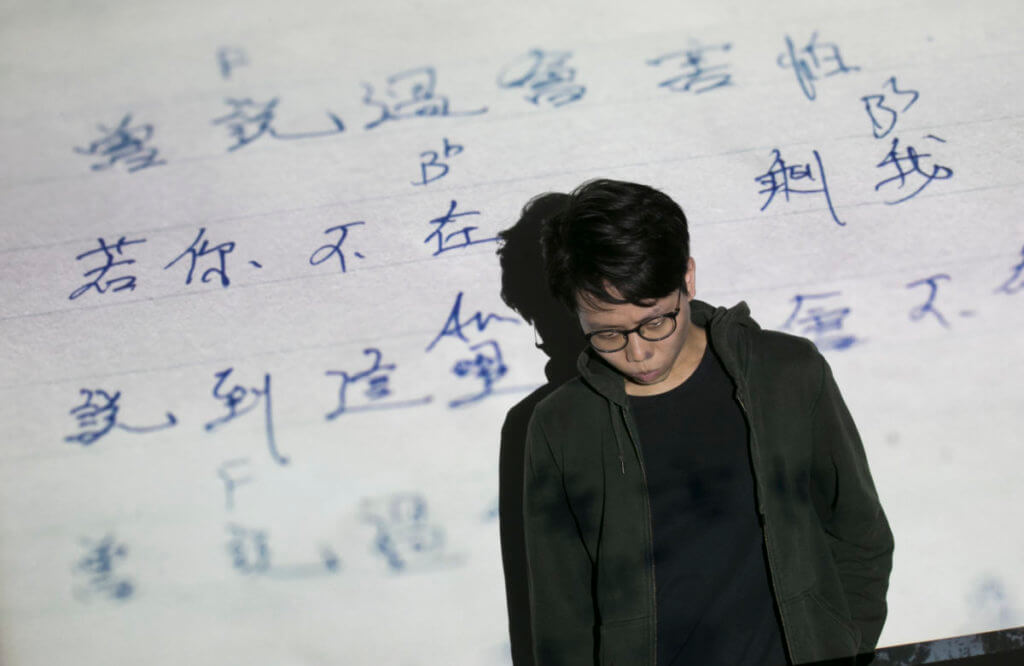 F
曾說過會害怕
B♭ B♭
若你不在 剩我
Am
說到這裡 會不
F
曾說過